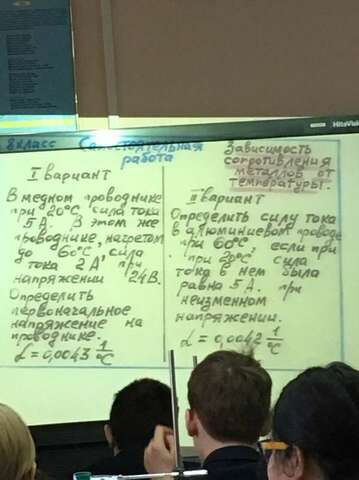 HitaVis
8 класс Самостоятельная
работа
Зависимость
сопротивления
металлов от
температуры.
I вариант
В медном проводнике
при 20°С сила тока
5 А. В этом же
проводнике, нагретом
до 60°С, сила
тока 2 А, при
напряжении 24В.
Определить
первоначальное
напряжение на
проводнике.
α = 0,0043 1/°С
II вариант
Определить силу тока
в алюминиевом проводе
при 60°С, если при
при 20°С, сила
тока в нем была
равна 5 А. при
неизменном
напряжении.
α = 0,0042 1/°С